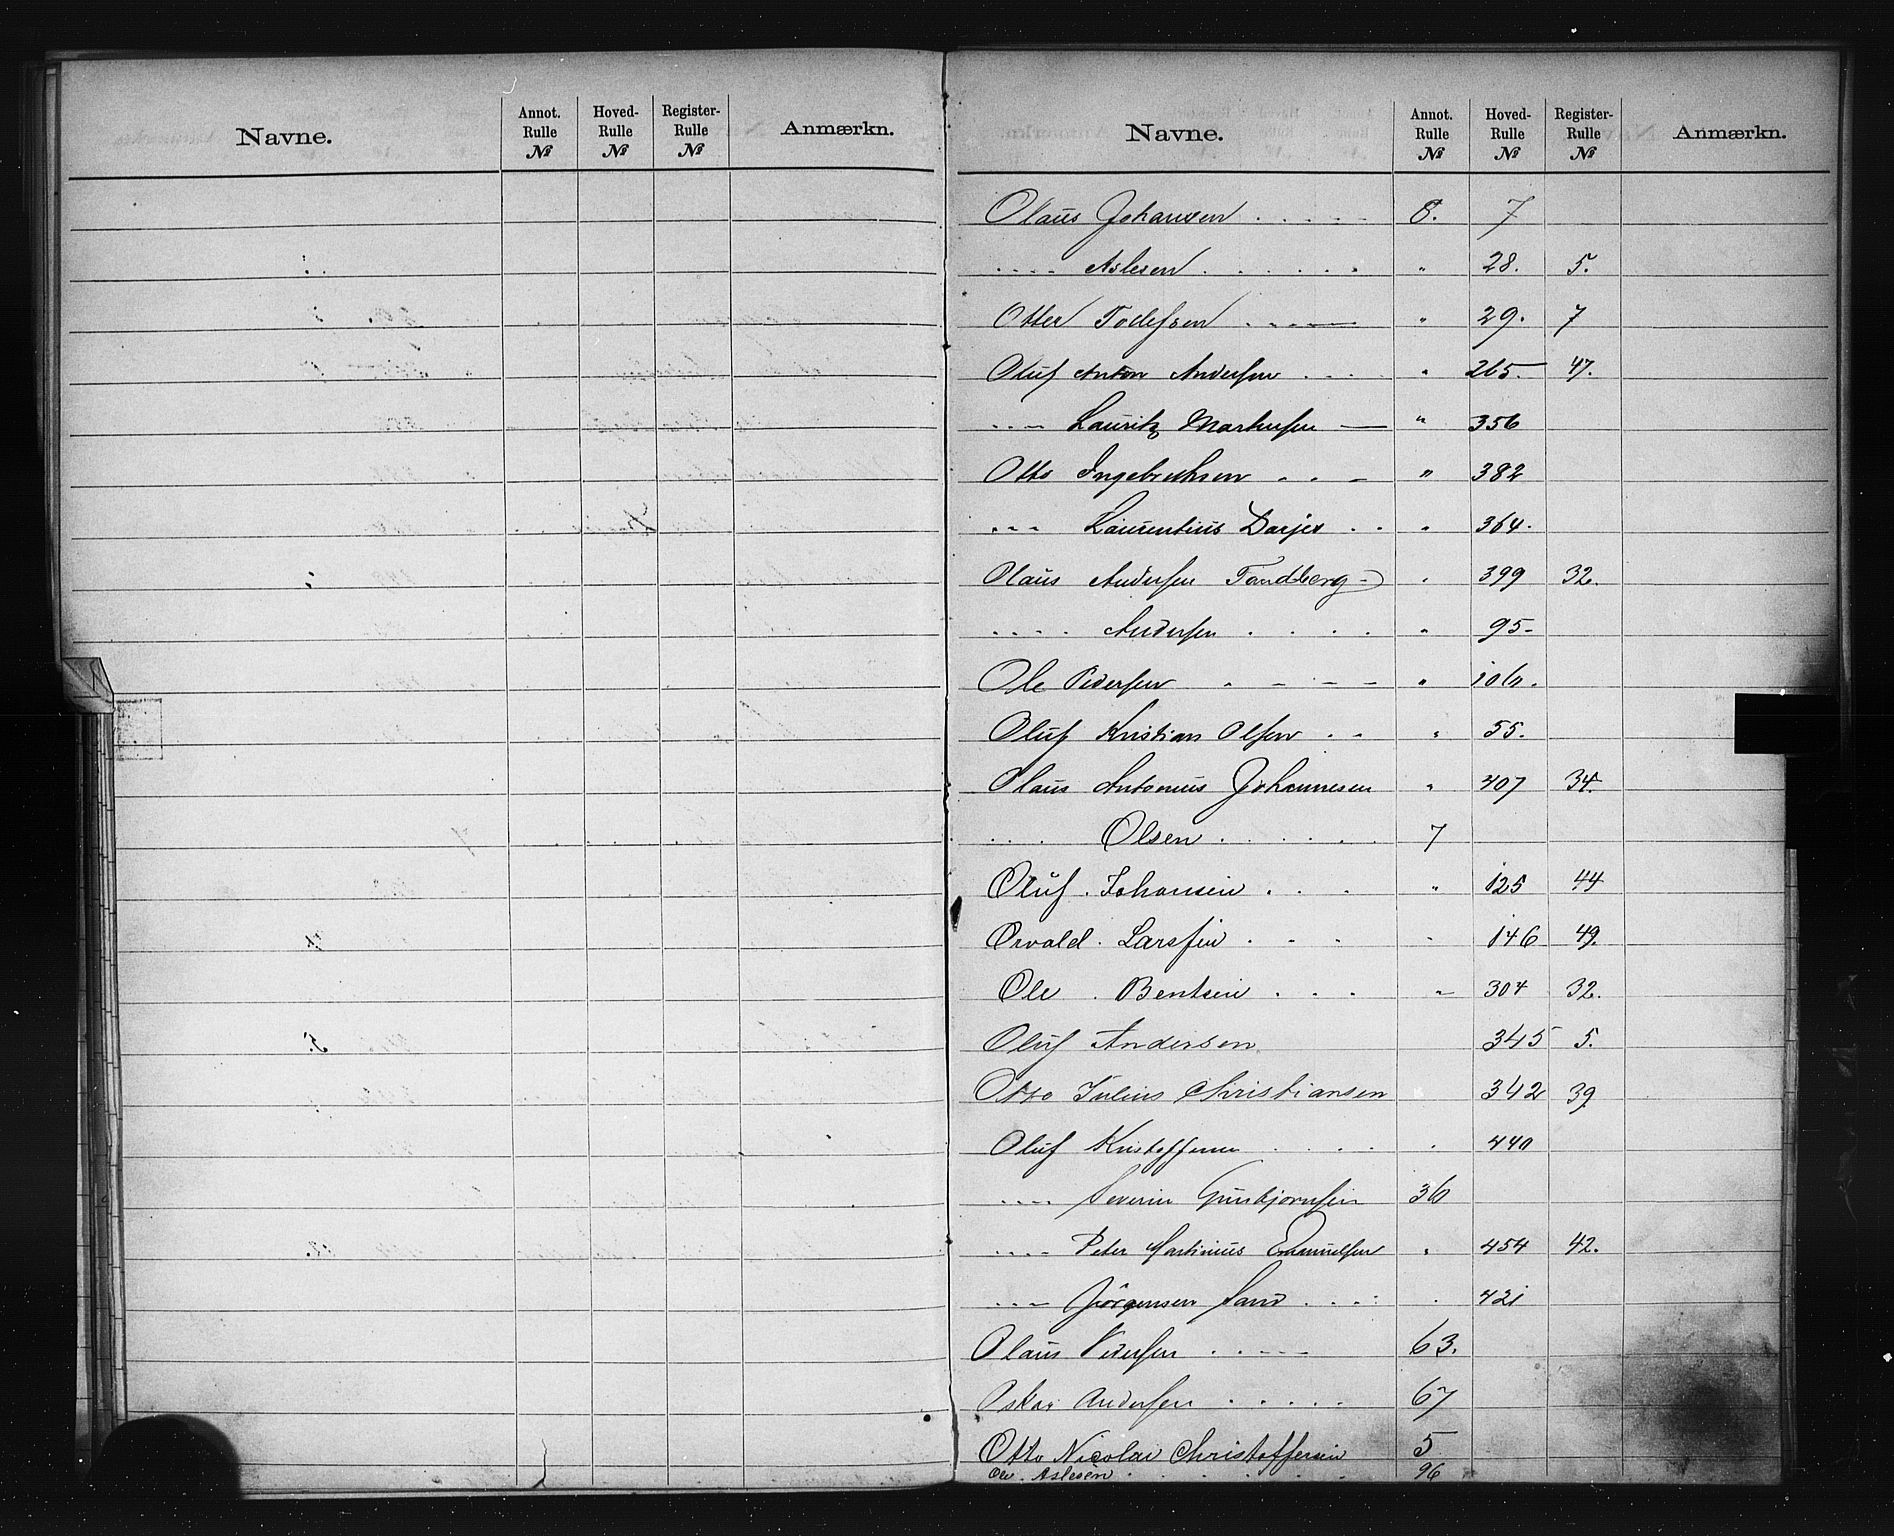 Navne. Annot. Rulle № Hoved- Rulle № Register- Rulle № Anmærkn.
Navne. Annot. Rulle № Hoved- Rulle № Register- Rulle № Anmærkn.
Olaus Johansen . . . . . 8. 7
.... Aslesen . . . . . . " 28. 5.
Otter Tollefsen . . . . " 29. 7
Oluf Anton Andersen . . . " 265. 47.
.... Lauritz Marthinsen — " 356
Otto Ingebrethsen . . . " 382
... Laurentius Darjes . . " 364.
Olaus Andersen Tandberg " 399 32.
.... Andersen . . . . " 95.
Ole Pedersen . . . . " 106.
Oluf Kristian Olsen . . " 55.
Olaus Antonius Johannesen " 407 34.
.... Olsen . . . . . . 7
Oluf . Johansen . . . " 125 44
Osvald . Larsen . . . " 146 49.
Ole . Bentsen . . . " 304 32.
Oluf Andersen 345 5.
Otto Julius Christiansen 342 39
Oluf Kristoffersen . . . . " 440
.... Severin Gunbjørnsen 36
.... Peter Martinius Emanuelsen " 454 42.
.... Jörgensen Sand . . . . " 421
Olaus Pedersen . . . . . 63.
Oskar Andersen . . . . . 67
Otto Nicolai Christoffersen 5
Ole . Aslesen . . . . . . 96
N